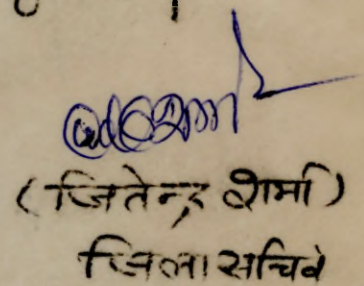 (जितेन्द्र शर्मा)
जिला सचिव